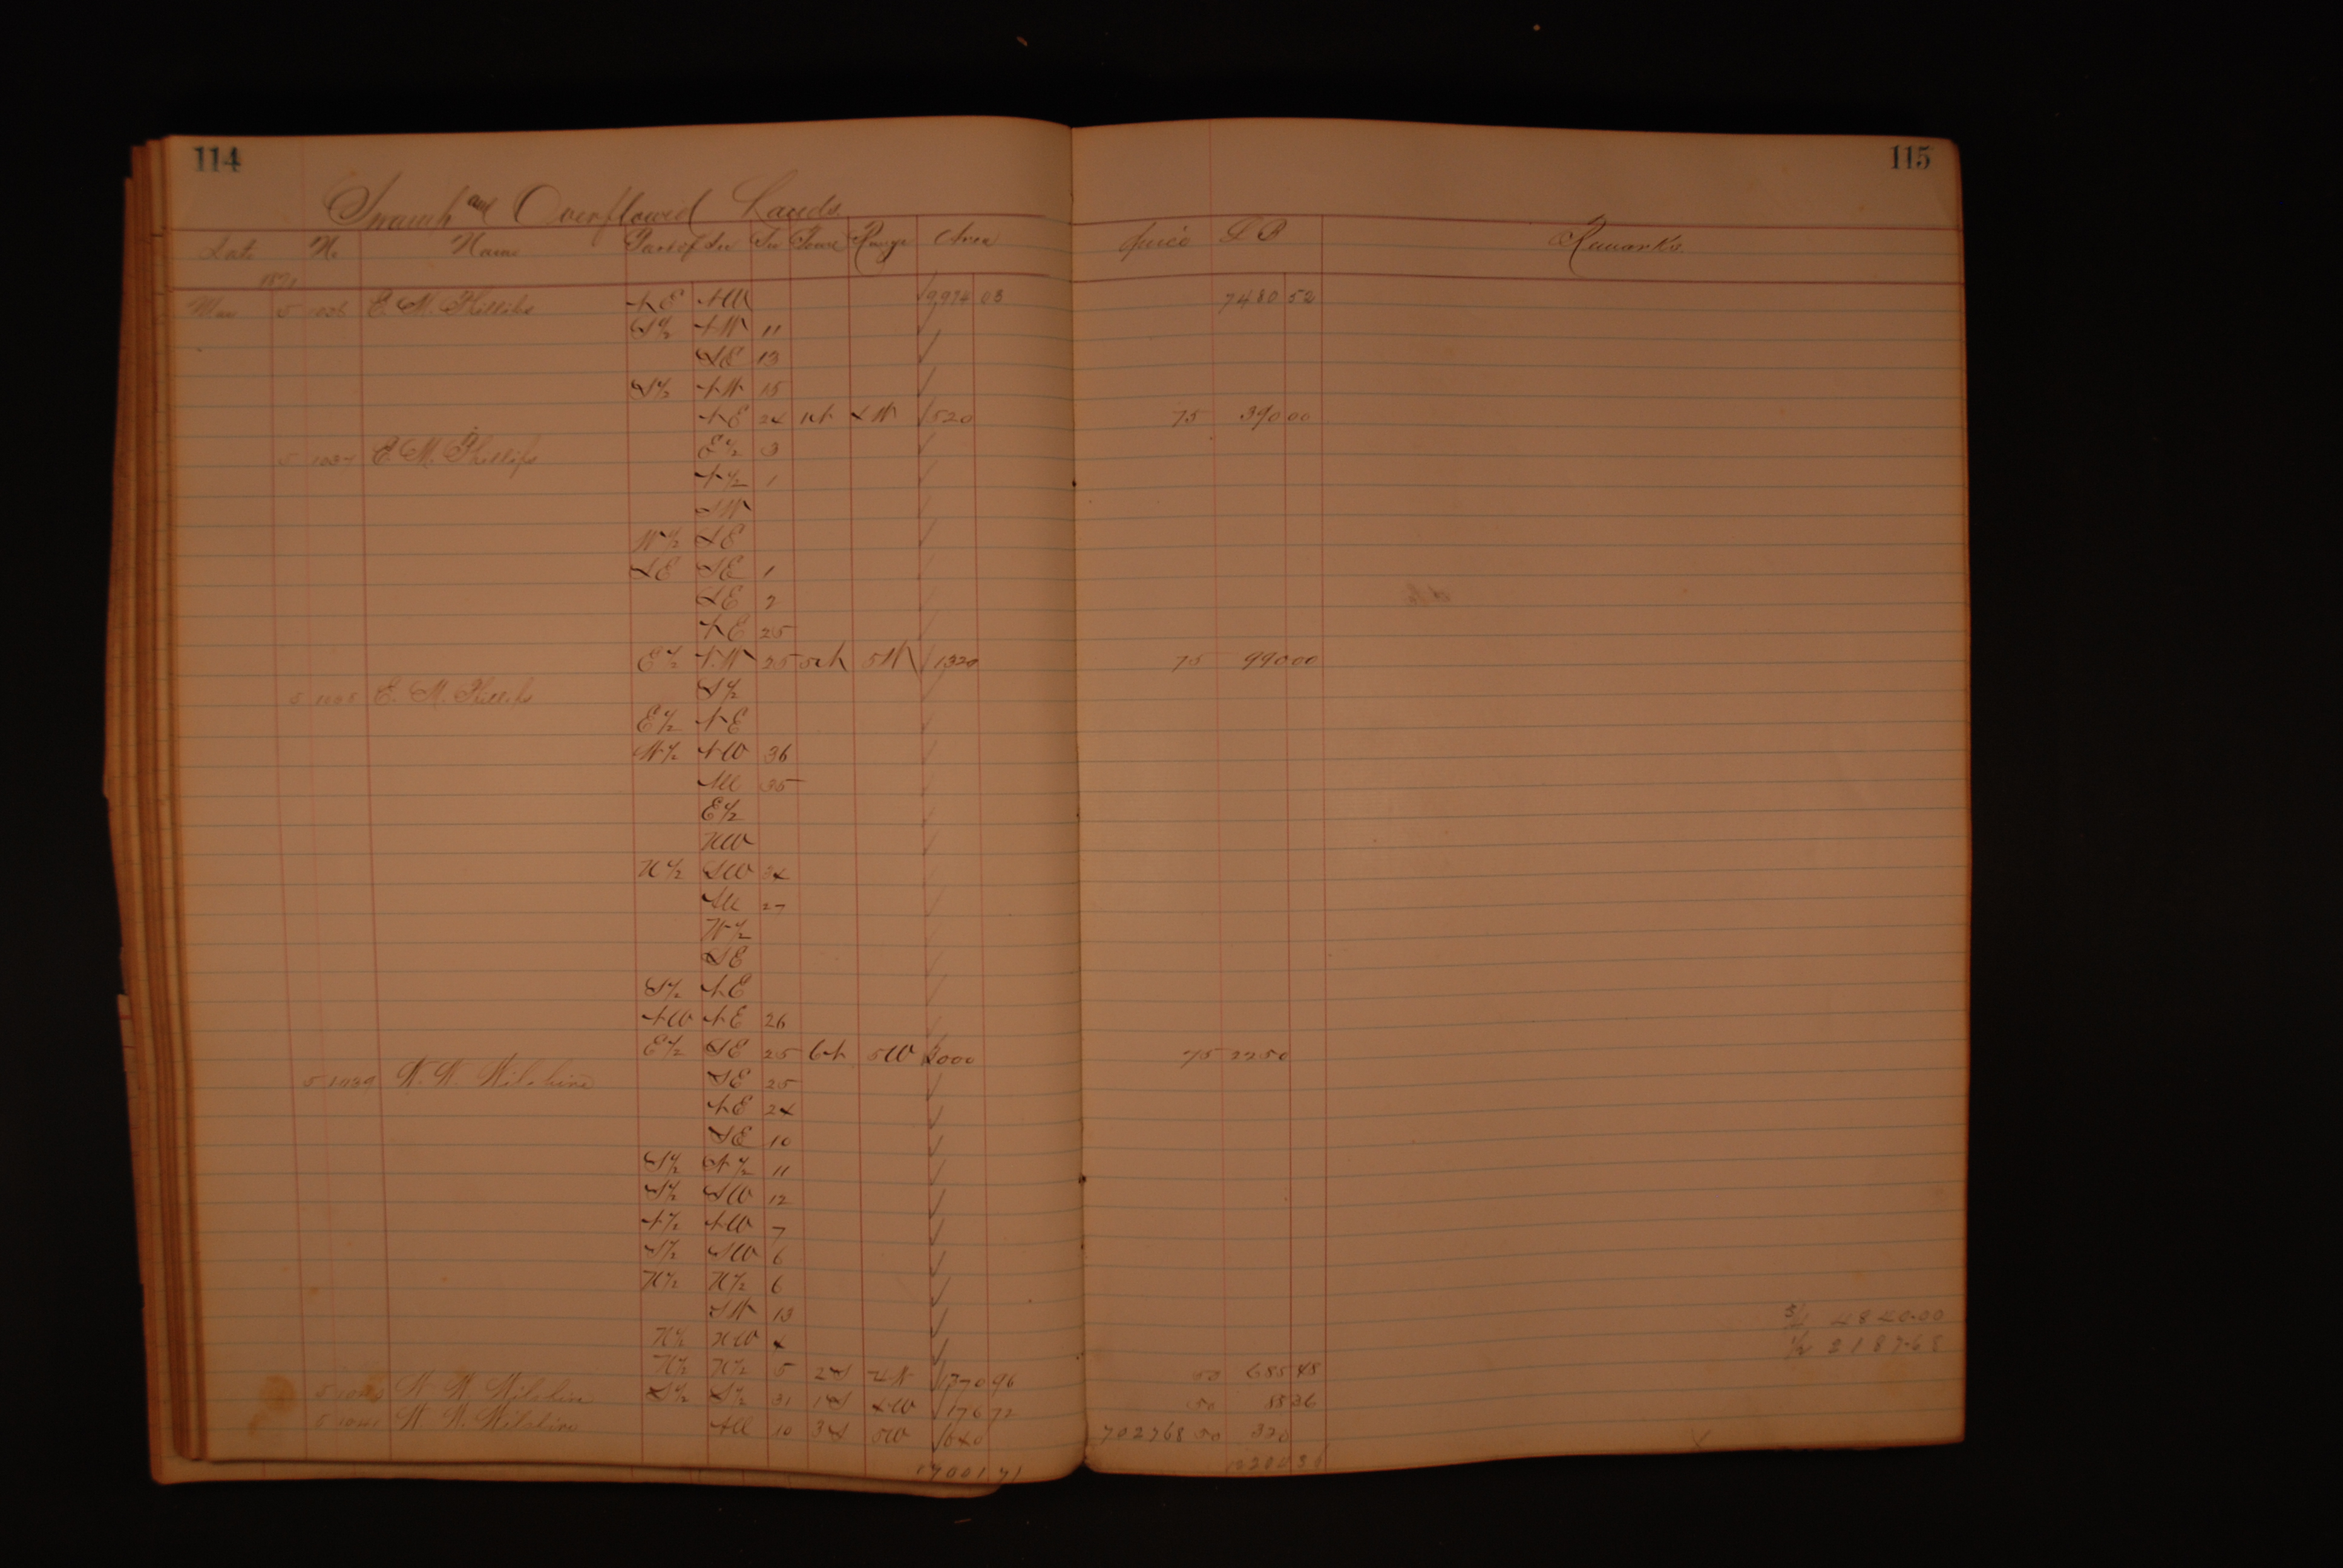 114 115
Swamp and Overflowed Lands
Date No Name Part of Sec Sec Town Range Area price S B Remarks
1871
Mar 5 1036 E. M. Phillips NE NW 9,974 03 7480 52
S½ NW 11
SE 13
S½ NW 15
NE 24 1N 4W 520 75 390 00
5 1037 E. M. Phillips E½ 3
N½ 1
SW
W½ SE
SE SE 1
SE 2
NE 25
E½ NW 25 5N 5W 1320 75 990 00
5 1038 E. M. Phillips S½
E½ NE
N½ NW 36
All 35
E½
NW
N½ SW 34
All 27
W½
SE
S½ NE
NW NE 26
E½ SE 25 6N 5W 3000 75 2250
5 1039 W. W. Wilshire SE 25
NE 24
SE 10
S½ N½ 11
S½ SW 12
N½ NW 7
S½ SW 6
N½ N½ 6
SW 13
N½ NW 4
N½ N½ 5 2S 4W 1370 96 50 685 48
5 1040 W. W. Wilshire S½ S½ 31 1S 4W 176 72 50 88 36
5 1041 W. W. Wilshire All 10 3S 5W 640 702768 50 320
17001 71
4840.00
½ 2187.68